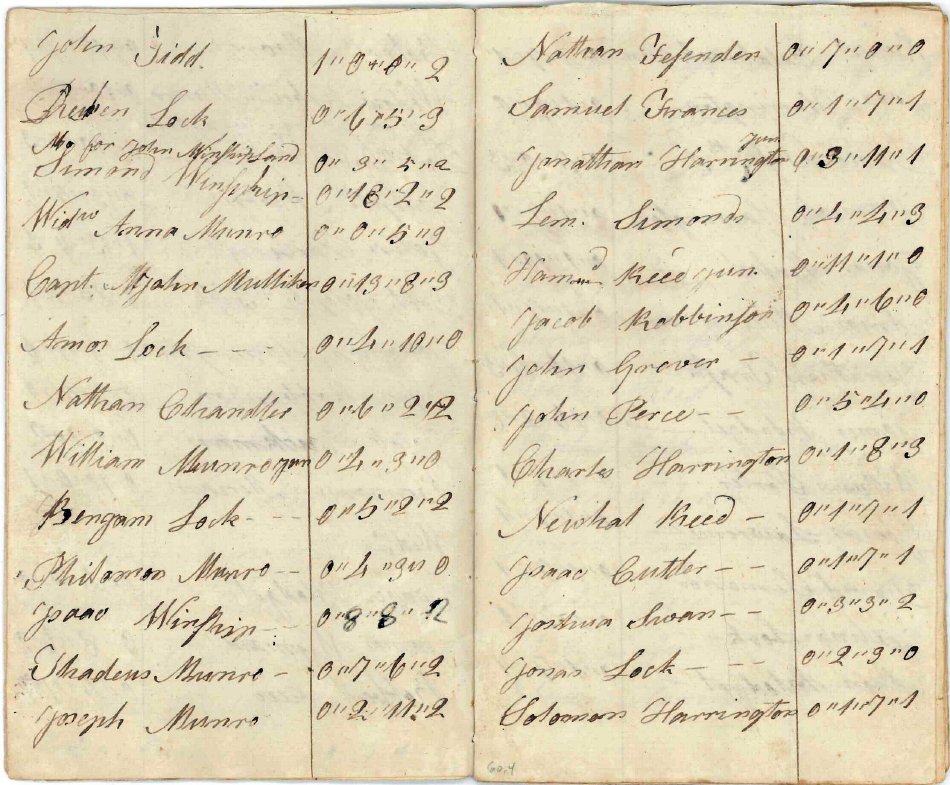 John Tidd. 1"0"0"2
Reuben Lock 0"6"5"3
Do for John Winship Land 0"3"5"2
Simond Winship 0"18"2"2
Widw Anna Munro 0"0"5"3
Capt. John Mulliken 0"13"8"3
Amos Lock - - - 0"4"10"0
Nathan Chandler 0"6"2"2
William Munro jun 0"4"3"0
Bengam Lock - - - 0"5"2"2
Philemon Munro - - 0"4"3"0
Isaac Winship - - 0"8"8"2
Thadeus Munro - 0"7"6"2
Joseph Munro 0"2"11"2
Nathan Fesenden 0"7"0"0
Samuel Frances 0"1"7"1
Jonathan Harrington jun 0"3"11"1
Lem. Simonds 0"4"4"3
Hamnd Reed jun. 0"11"1"0
Jacob Robbinson 0"4"6"0
John Grover - 0"1"7"1
John Perce - - 0"5"4"0
Charles Harrington 0"1"8"3
Newhal Reed - 0"1"7"1
Isaac Cutler - - 0"1"7"1
Joshua Swan - - 0"3"3"2
Jonas Lock - - - 0"2"9"0
Solomon Harrington 0"1"7"1
60.4